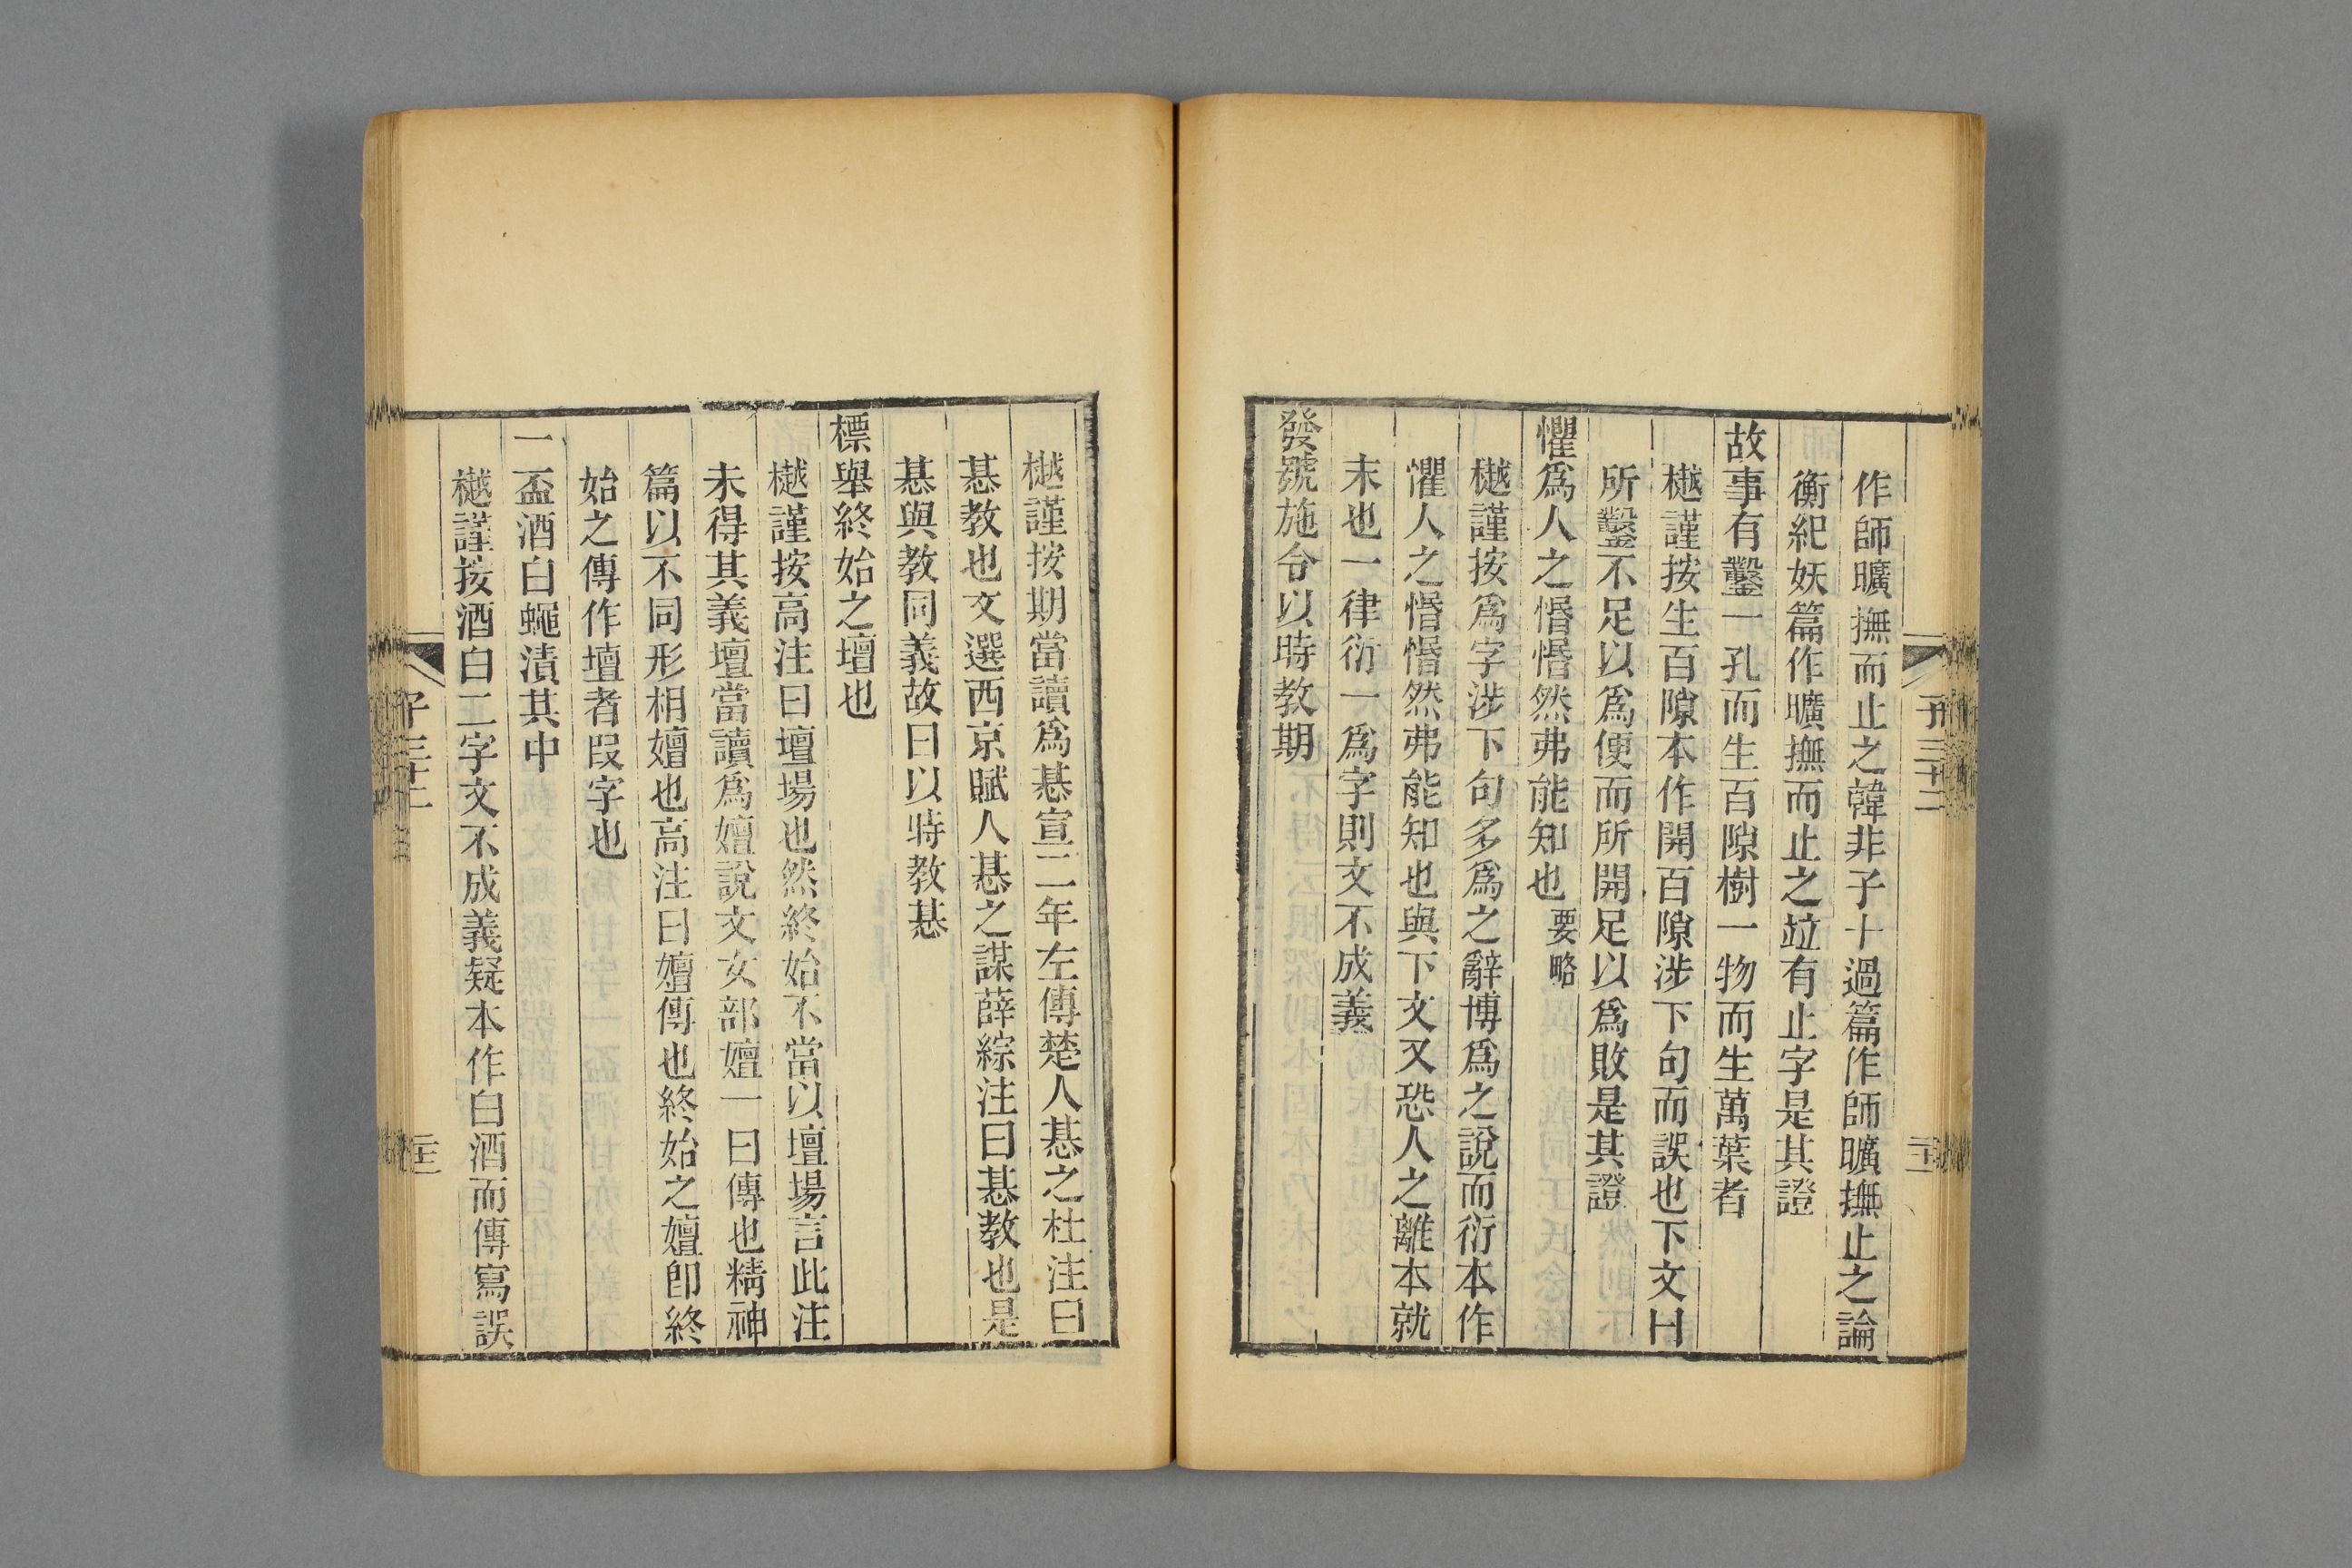 作師曠撫而止之韓非子十過篇作師曠撫止之論
衡紀妖篇作曠撫而止之竝有止字是其證
故事有鑿一孔而生百隙樹一物而生萬葉者
樾謹按生百隙本作開百隙涉下句而誤也下文曰
所鑿不足以爲便而所開足以爲敗是其證
懼爲人之惽惽然弗能知也要略
樾謹按爲字涉下句多爲之辭博爲之說而衍本作
懼人之惽惽然弗能知也與下文又恐人之離本就
末也一律衍一爲字則文不成義
發號施令以時教期
樾謹按期當讀爲惎宣二年左傳楚人惎之杜注曰
惎教也文選西京賦人惎之謀薛綜注曰惎教也是
惎與教同義故曰以時教惎
標舉終始之壇也
樾謹按高注曰壇場也然終始不當以壇場言此注
未得其義壇當讀爲嬗說文女部嬗一曰傳也精神
篇以不同形相嬗也高注曰嬗傳也終始之嬗卽終
始之傳作壇者叚字也
一盃酒白蠅漬其中
樾謹按酒白二字文不成義疑本作白酒而傳寫誤
子三十二